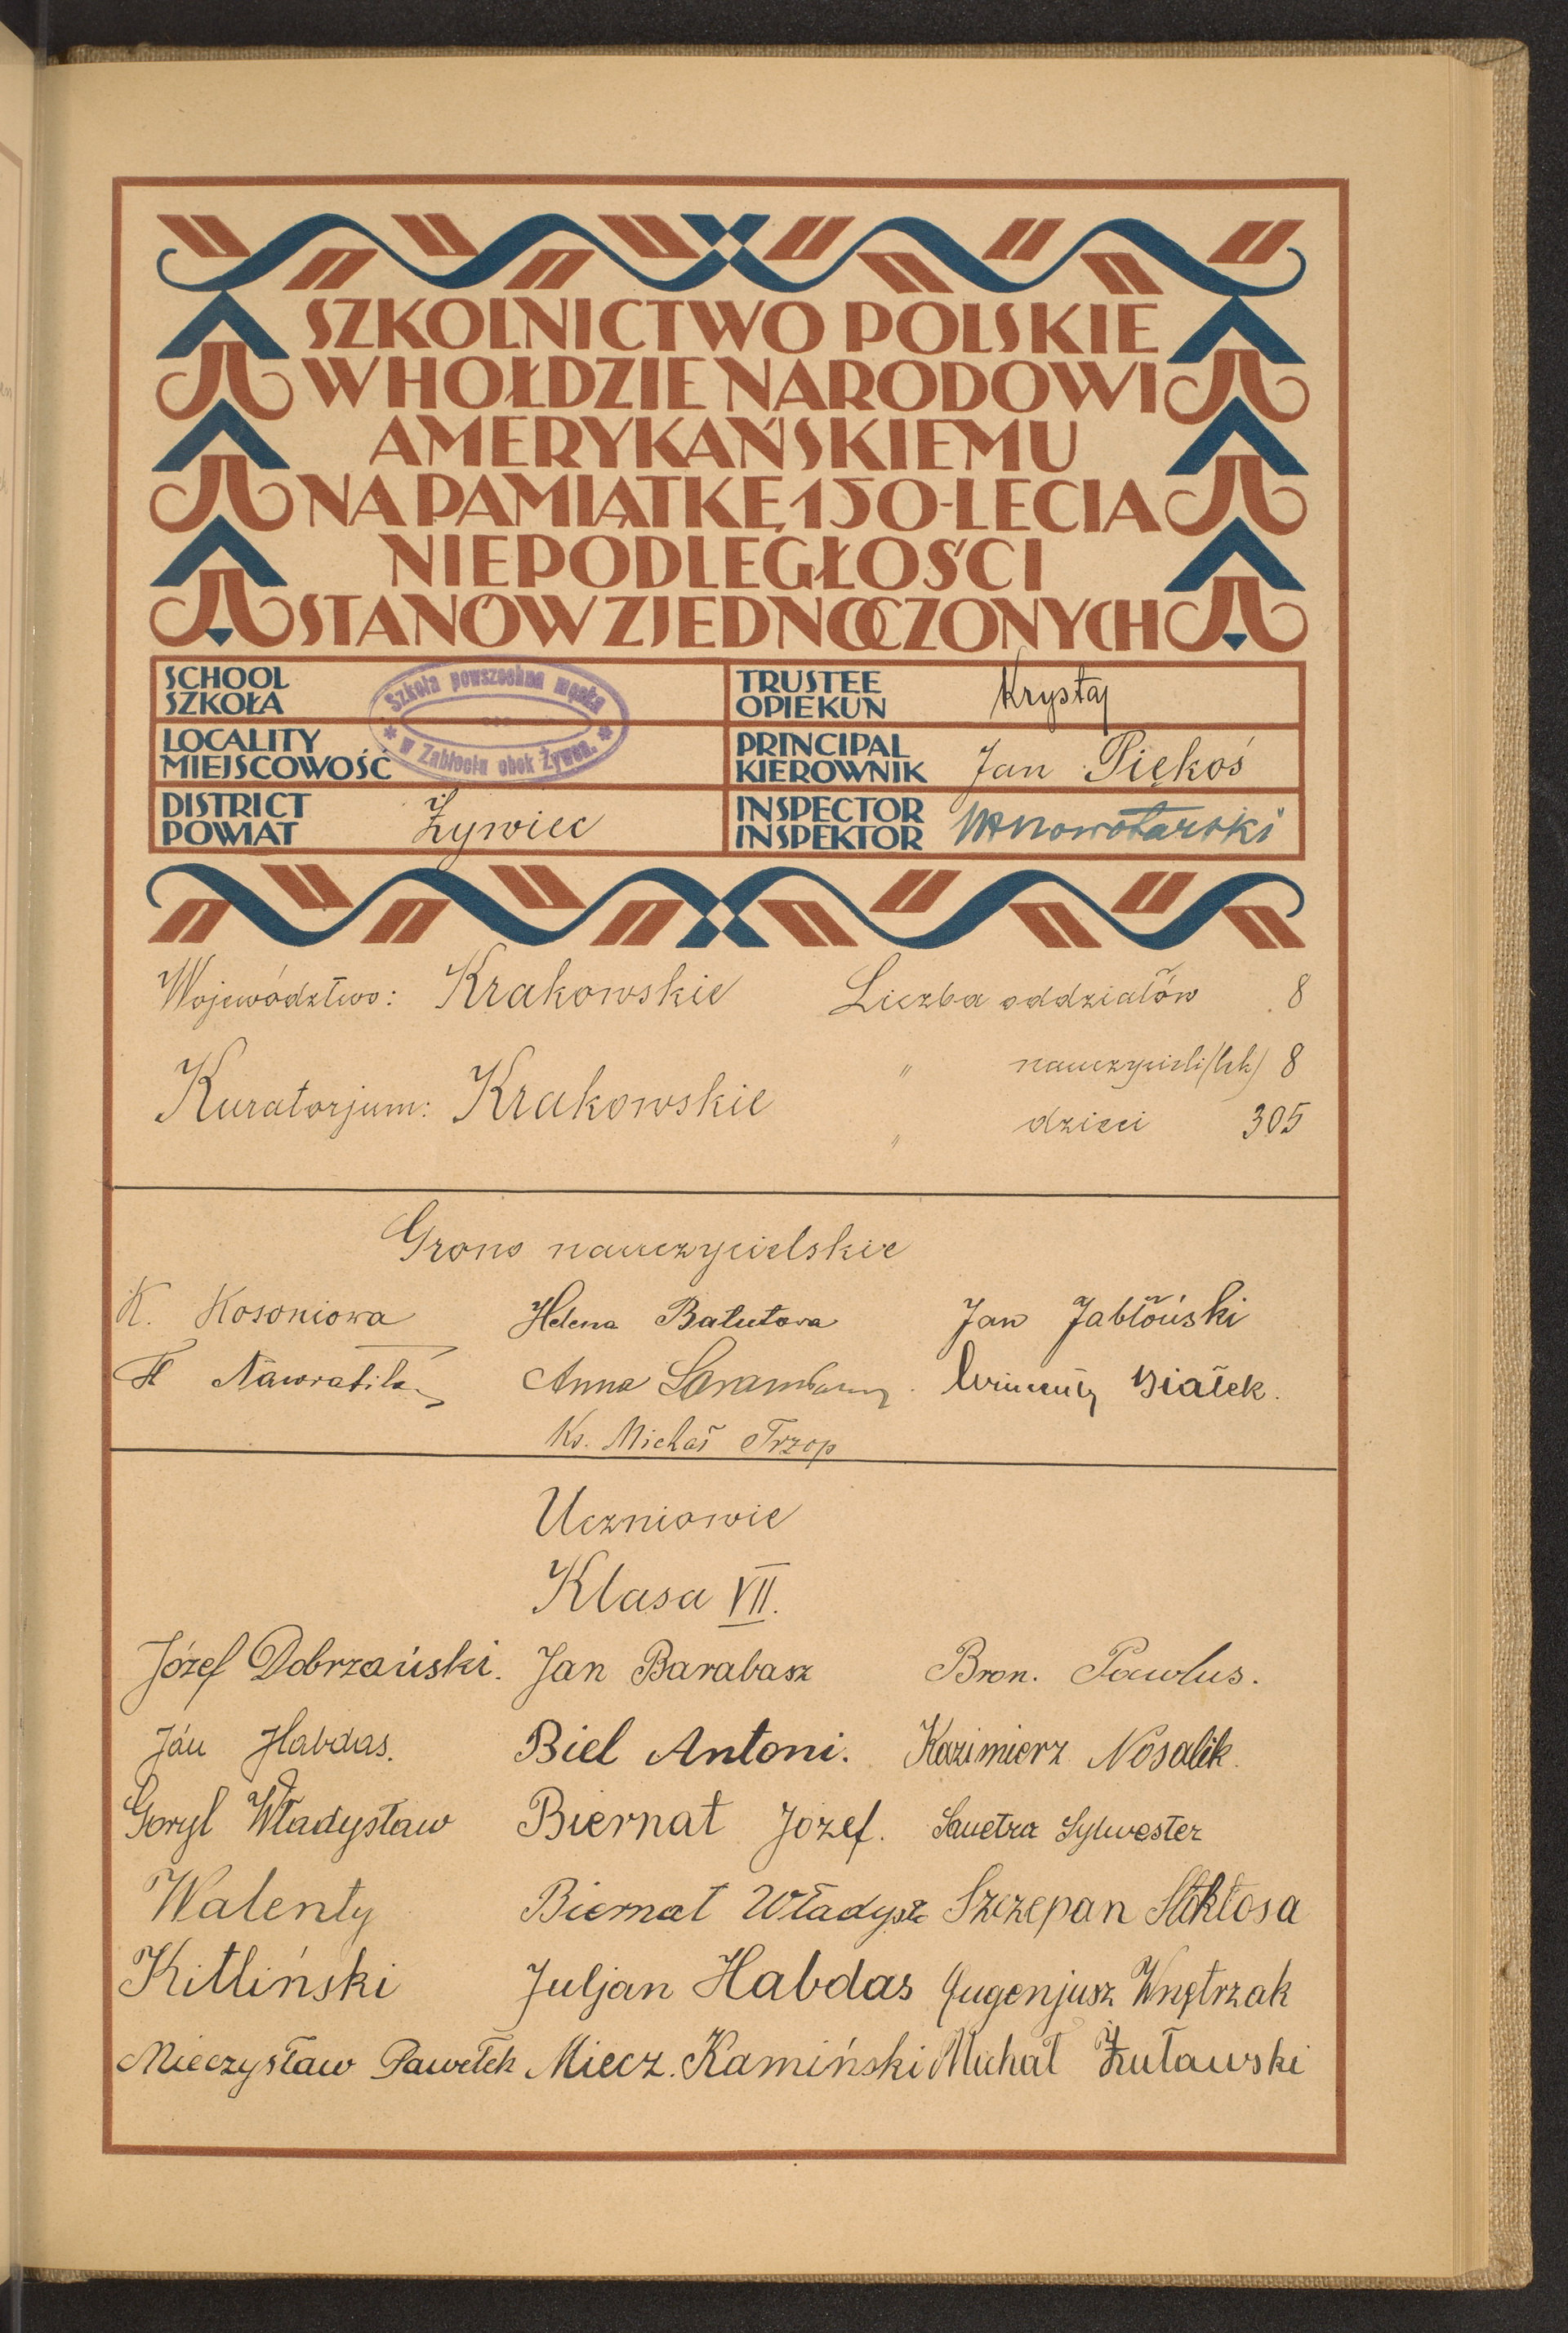 SZKOLNICTWO POLSKIE
W HOŁDZIE NARODOWI
AMERYKAŃSKIEMU
NA PAMIĄTKĘ 150-LECIA
NIEPODLEGŁOŚCI
STANÓW ZJEDNOCZONYCH
SCHOOL
SZKOŁA
Szkoła powszechna męska
w Zabłociu obok Żywca.
LOCALITY
MIEJSCOWOŚĆ
DISTRICT
POWIAT
Żywiec
TRUSTEE
OPIEKUN
Krystaj
PRINCIPAL
KIEROWNIK
Jan Piękoś
INSPECTOR
INSPEKTOR
Nowotarski
Województwo: Krakowskie
Liczba oddziałów 8
Kuratorjum: Krakowskie
" nauczycieli(lek) 8
" dzieci 305
Grono nauczycielskie
K. Kosoniowa Helena Bałutowa Jan Jabłoński
Nawratil Anna Wincenty Białek.
Ks. Michał Trzop
Uczniowie
Klasa VII.
Józef Dobrzański. Jan Barabasz Bron. Pawlus.
Jan Habdas. Biel Antoni. Kazimierz Nosalik.
Goryl Władysław Biernat Józef. Sanetra Sylwester
Walenty Biernat Władysł Szczepan Stokłosa
Kitliński Juljan Habdas Eugenjusz Wnętrzak
Mieczysław Pawełek Miecz. Kamiński Michał Żuławski